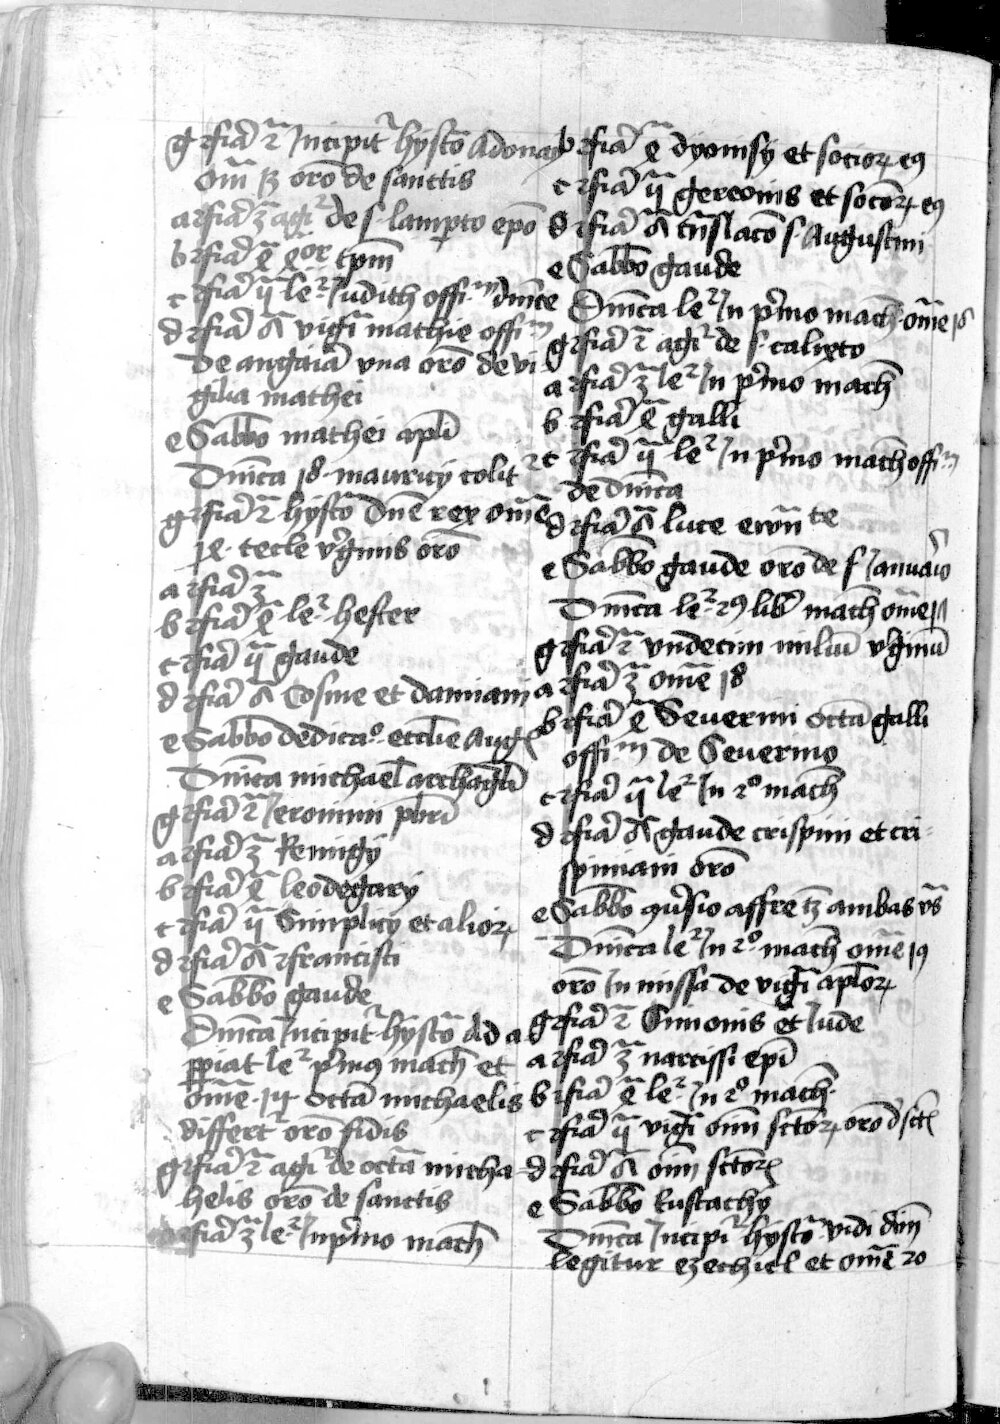 g feria 2 Incipitur hysto Adonay
Om̄ 13 oro de sanctis
a feria 3 agir de s. lamperto epo
b feria 4 4or tpm
c feria 5 ler Judith offim dnice
d feria 6 vigi mathie offim
De angaria vna oro de vi
gilia mathei
e Sabbo mathei apli
Dnica 18 mauricy colit
g feria 2 hysto Dne rex ome
14 tecle vginis oro
a feria 3
b feria 4 ler hester
c feria 5 gaude
d feria 6 Cosme et damiani
e Sabbo dedicao ecclie Aug
Dnica michael archagli
g feria 2 Jeronimi pbri
a feria 3 Remigy
b feria 4 leodegary
c feria 5 Simplicy et alior
d feria 6 francisci
e Sabbo gaude
Dnica Incipitr hysto Ad a
ppiat ler pmo mach et
ome 17 octa michaelis
differt oro fidis
g feria 2 agir de octa micha=
helis oro de sanctis
feria 3 ler In pmo mach
b feria 4 dyonisy et socior eg
c feria 5 gereonis et socor eg
d feria 6 tnslaco s Augustini
e Sabbo gaude
Dnica ler In pmo mach ome 18
g feria 2 agir de s. calixto
a feria 3 ler In pmo mach
b feria 4 galli
c feria 5 ler In pmo mach offim
de dnica
d feria 6 luce ewnte
e Sabbo gaude oro de s Januario
Dnica ler 29 lib mach ome
g feria 2 vndecim miliu vginu
a feria 3 ome 18
b feria 4 Seuerini octa galli
offim de Seuerino
c feria 5 ler In 2o mach
d feria 6 gaude crispini et cri=
spiniani oro
e Sabbo 9uersio affre tz ambas vs
Dnica ler In 2o mach ome 19
oro In missa de vigi aplor
g feria 2 Simonis et Jude
a feria 3 narcissi epi
b feria 4 ler In 2o mach
c feria 5 vigi oim sctor oro d sctis
d feria 6 oim sctor
e Sabbo Eustachy
Dnica Incipir hysto vidi dnm
legitur ezechiel et ome 20